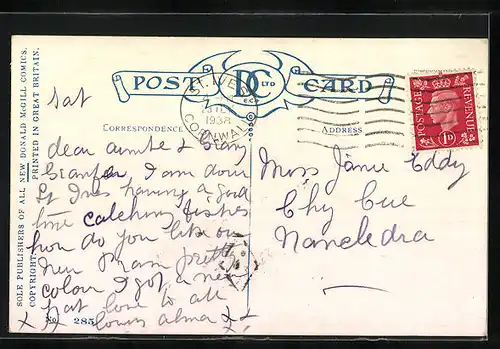 POST D C LTD E.C. CARD
ST. IVES
1938
CORNWALL
POSTAGE REVENUE
1D
CORRESPONDENCE
ADDRESS
SOLE PUBLISHERS OF ALL NEW DONALD MCGILL COMICS.
COPYRIGHT. PRINTED IN GREAT BRITAIN.
No. 285
Sat
dear aunte &
I am down
St Ives having a good
time catching fishes
how do you like our
new Pram pretty
colour I got a new
hat love to all
X X love alma X X
Miss Janie Eddy
Chy Cue
Nancledra